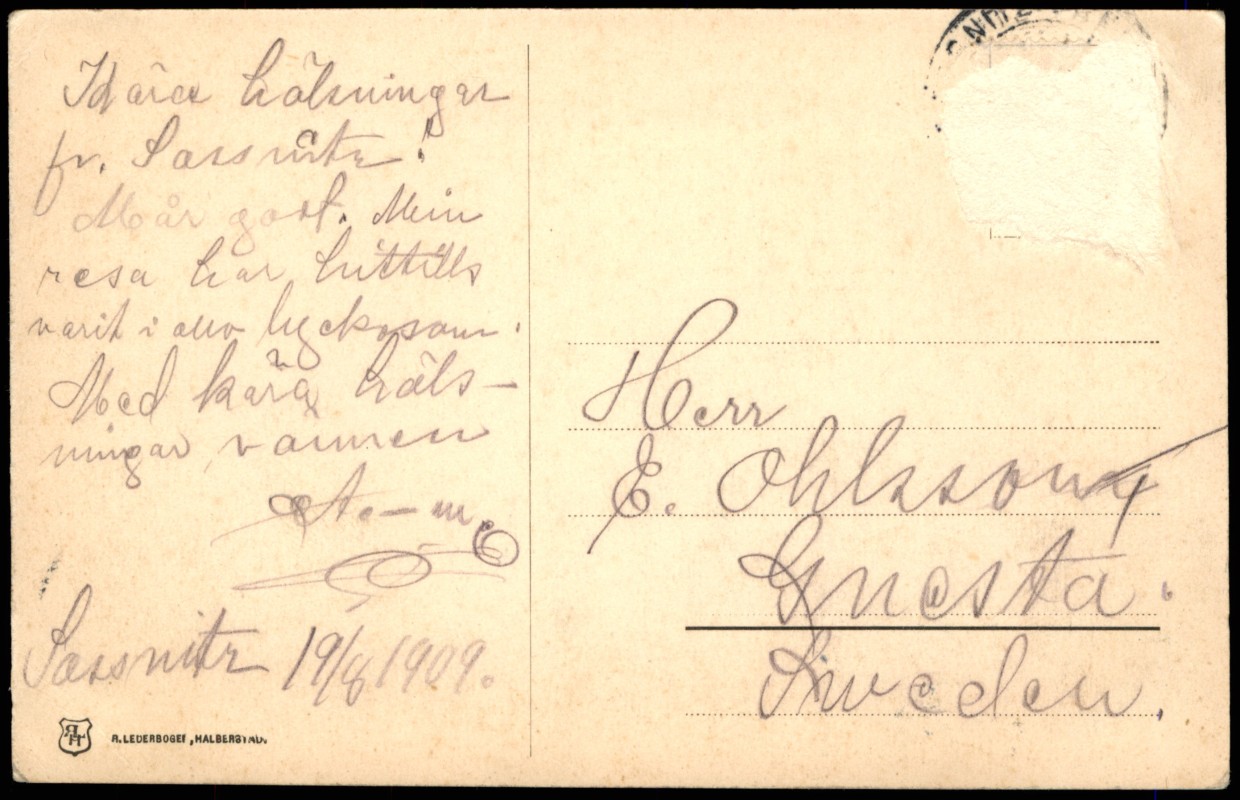 Kära hälsningar
fr. Sassnitz!
Mår godt. Min
resa har hittills
varit i allo lyckosam.
Med kära häls-
ningar, vännen
A.–m.
Sassnitz 19/8 1909.
R. LEDERBOGEN, HALBERSTADT.
Herr
E. Ohlsson
Gnesta.
Sweden.